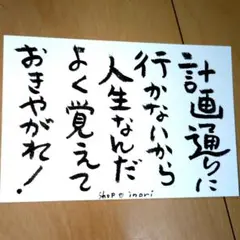 計画通りに
行かないから
人生なんだ
よく覚えて
おきやがれ!
shop inori